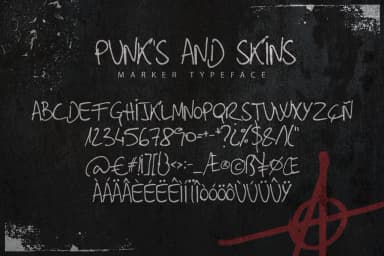 PUNK'S AND SKINS
MARKER TYPEFACE
ABCDEFGHIJKLMNOPQRSTUVWXYZÇÑ
1234567890=+-*?¿%$&/\("
@€#[]{}<>:-_Æ®©ß¥ØŒ
ÀÁÄÂÈÉËÊÌÍÏÎÒÓÖÔÙÚÜÛŸ